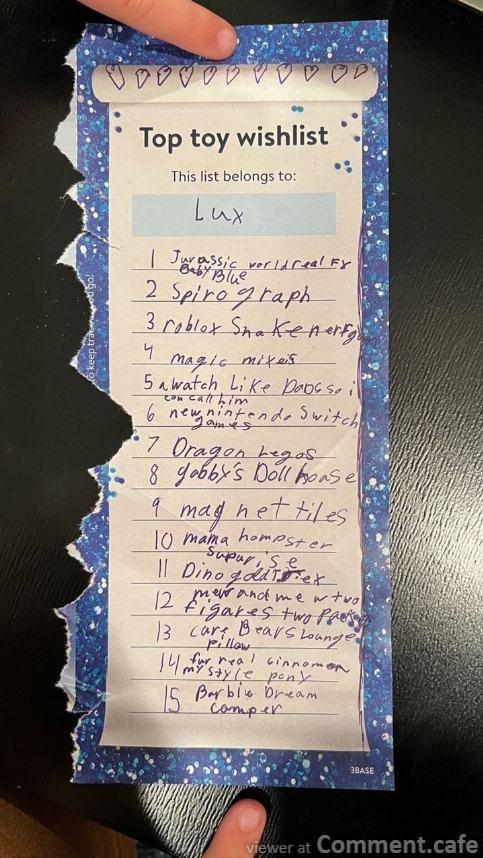 Top toy wishlist
This list belongs to:
Lux
1 Jurassic world real FX
Baby Blue
2 Spirograph
3 roblox Snake nerf gun
4 magic mixeis
5 a watch Like Dads so i
can call him
6 new nintendo Switch
games
7 Dragon Legos
8 gabby's Doll hoase
9 mag net tiles
10 mama hompster
supur, s e
11 Dino gold T rex
12 mew and me w two
figares two Pack
13 care Bears Lounge
pillow
14 fur real cinnomon
my style pony
15 Barbie Dream
camper
3BASE
to keep trac you go!
viewer at Comment.cafe